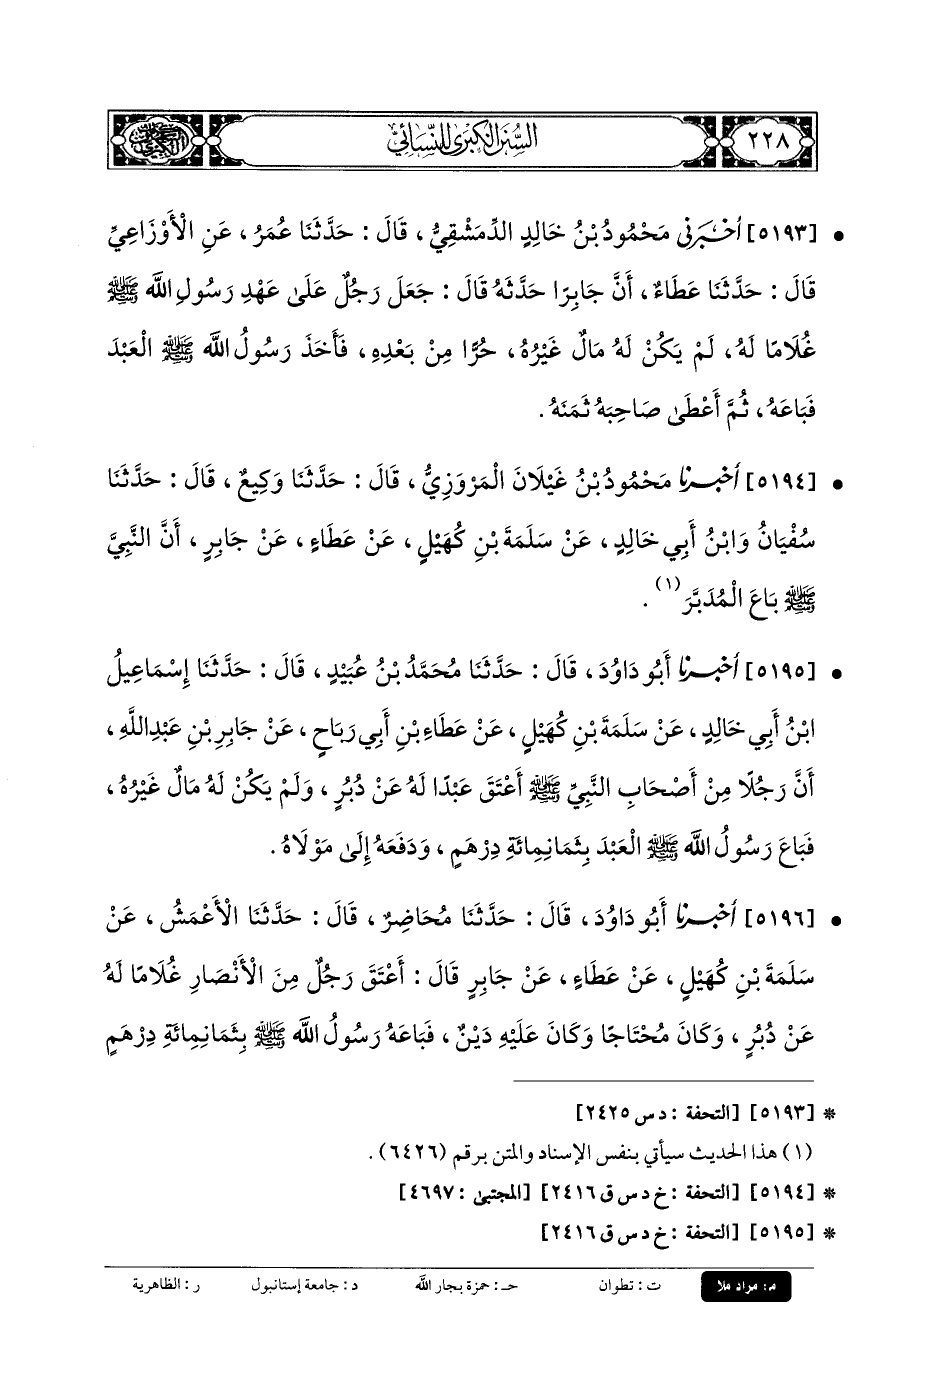 ٢٢٨
السنن الكبرى للنسائي
• [٥١٩٣] أَخْبَرَنِي مَحْمُودُ بْنُ خَالِدٍ الدِّمَشْقِيُّ، قَالَ: حَدَّثَنَا عُمَرُ، عَنِ الْأَوْزَاعِيِّ
قَالَ: حَدَّثَنَا عَطَاءٌ، أَنَّ جَابِرًا حَدَّثَهُ قَالَ: جَعَلَ رَجُلٌ عَلَى عَهْدِ رَسُولِ اللَّه ﷺ
غُلَامًا لَهُ، لَمْ يَكُنْ لَهُ مَالٌ غَيْرُهُ، حُرًّا مِنْ بَعْدِهِ، فَأَخَذَ رَسُولُ اللَّه ﷺ الْعَبْدَ
فَبَاعَهُ، ثُمَّ أَعْطَى صَاحِبَهُ ثَمَنَهُ.
• [٥١٩٤] أَخْبَرَنَا مَحْمُودُ بْنُ غَيْلَانَ الْمَرْوَزِيُّ، قَالَ: حَدَّثَنَا وَكِيعٌ، قَالَ: حَدَّثَنَا
سُفْيَانُ وَابْنُ أَبِي خَالِدٍ، عَنْ سَلَمَةَ بْنِ كُهَيْلٍ، عَنْ عَطَاءٍ، عَنْ جَابِرٍ، أَنَّ النَّبِيَّ
ﷺ بَاعَ الْمُدَبَّرَ (١).
• [٥١٩٥] أَخْبَرَنَا أَبُو دَاوُدَ، قَالَ: حَدَّثَنَا مُحَمَّدُ بْنُ عُبَيْدٍ، قَالَ: حَدَّثَنَا إِسْمَاعِيلُ
ابْنُ أَبِي خَالِدٍ، عَنْ سَلَمَةَ بْنِ كُهَيْلٍ، عَنْ عَطَاءِ بْنِ أَبِي رَبَاحٍ، عَنْ جَابِرِ بْنِ عَبْدِاللَّهِ،
أَنَّ رَجُلًا مِنْ أَصْحَابِ النَّبِيِّ ﷺ أَعْتَقَ عَبْدًا لَهُ عَنْ دُبُرٍ، وَلَمْ يَكُنْ لَهُ مَالٌ غَيْرُهُ،
فَبَاعَ رَسُولُ اللَّه ﷺ الْعَبْدَ بِثَمَانِمِائَةِ دِرْهَمٍ، وَدَفَعَهُ إِلَى مَوْلَاهُ.
• [٥١٩٦] أَخْبَرَنَا أَبُو دَاوُدَ، قَالَ: حَدَّثَنَا مُحَاضِرٌ، قَالَ: حَدَّثَنَا الْأَعْمَشُ، عَنْ
سَلَمَةَ بْنِ كُهَيْلٍ، عَنْ عَطَاءٍ، عَنْ جَابِرٍ قَالَ: أَعْتَقَ رَجُلٌ مِنَ الْأَنْصَارِ غُلَامًا لَهُ
عَنْ دُبُرٍ، وَكَانَ مُحْتَاجًا وَكَانَ عَلَيْهِ دَيْنٌ، فَبَاعَهُ رَسُولُ اللَّه ﷺ بِثَمَانِمِائَةِ دِرْهَمٍ
* [٥١٩٣] [التحفة: د س ٢٤٢٥]
(١) هذا الحديث سيأتي بنفس الإسناد والمتن برقم (٦٤٢٦).
* [٥١٩٤] [التحفة: خ د س ق ٢٤١٦] [المجتبى: ٤٦٩٧]
* [٥١٩٥] [التحفة: خ د س ق ٢٤١٦]
م: مراد ملا ت: تطوان حـ: حمزة بجار اللَّه د: جامعة إستانبول ر: الظاهرية